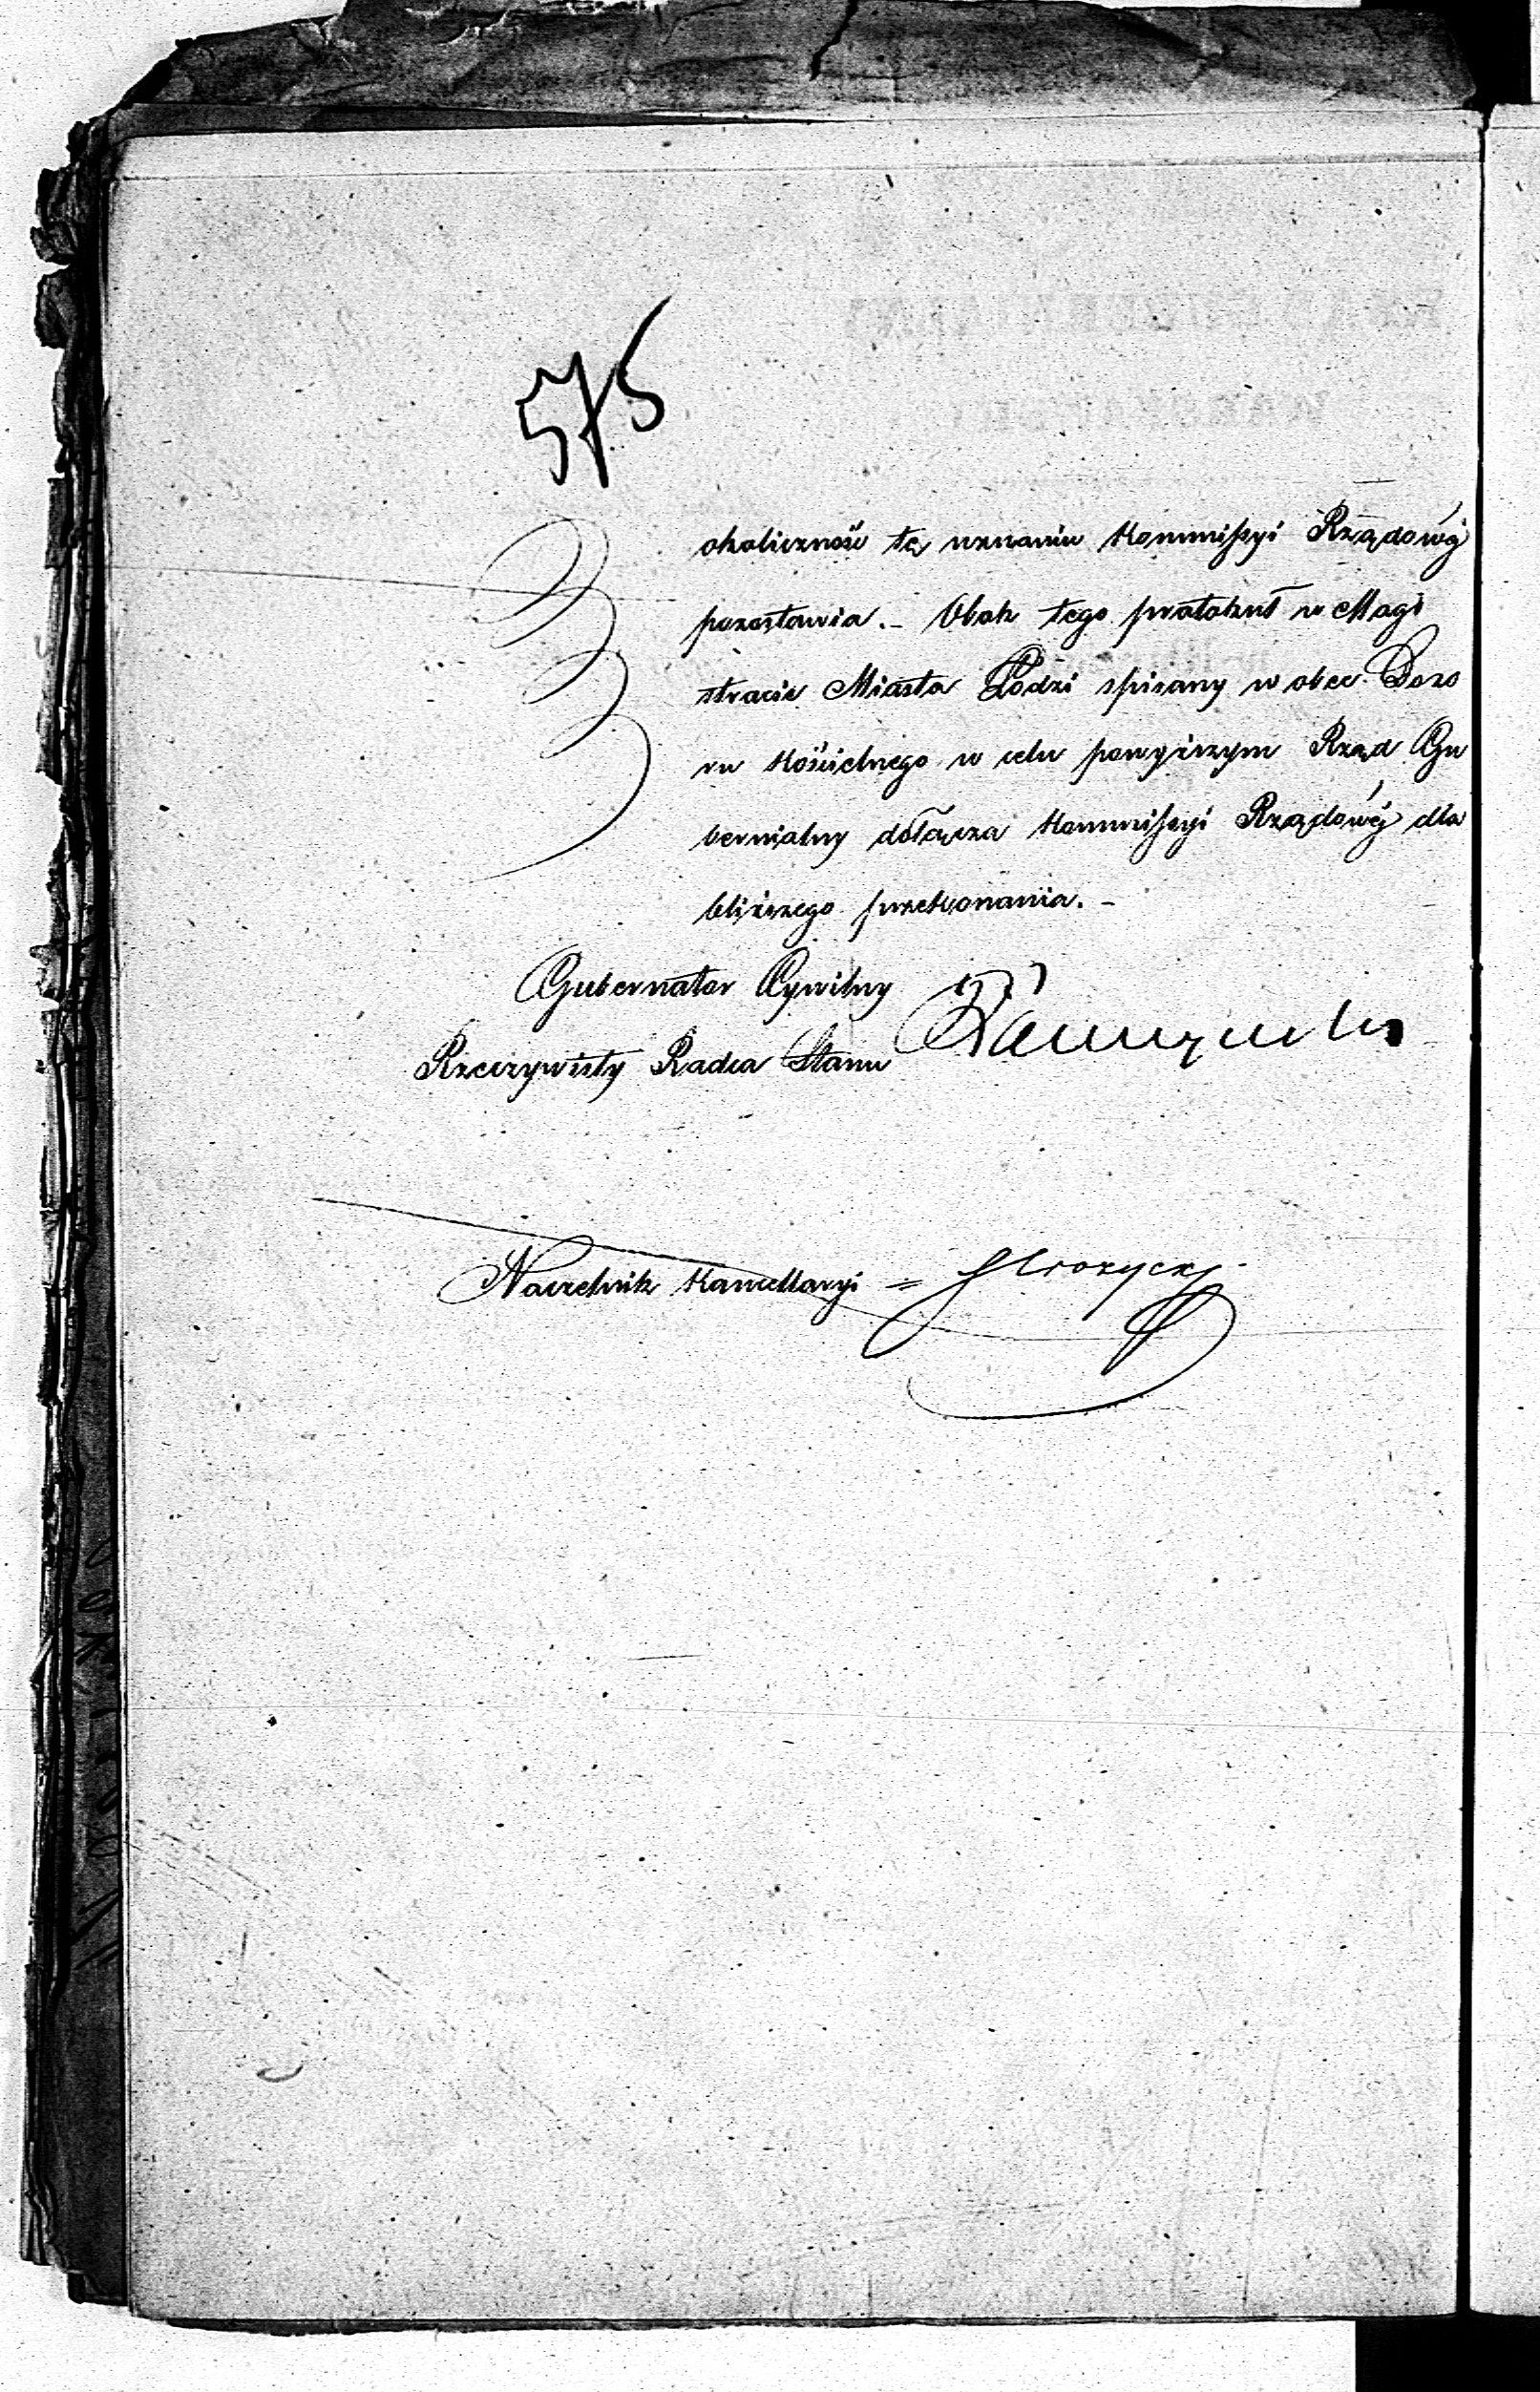 575
okoliczność tę uznaniu Kommissyi Rządowéj
pozostawia. – Obok tego protokuł w Magi
stracie Miasta Łodzi spisany w obec Dozo
ru Kościelnego w celu powyższym Rząd Gu
bernialny dołącza Kommissyi Rządowéj dla
bliższego przekonania. –
Gubernator Cywilny
Rzeczywisty Radca Stanu
Naczelnik Kancellaryi =